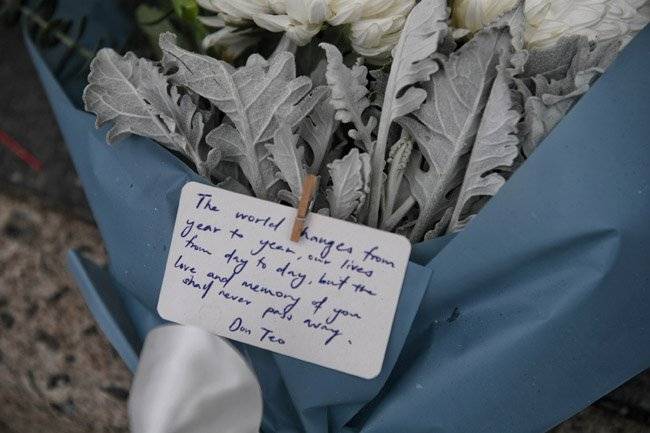 The world changes from
year to year, our lives
from day to day, but the
love and memory of you
shall never pass away.
Don Teo